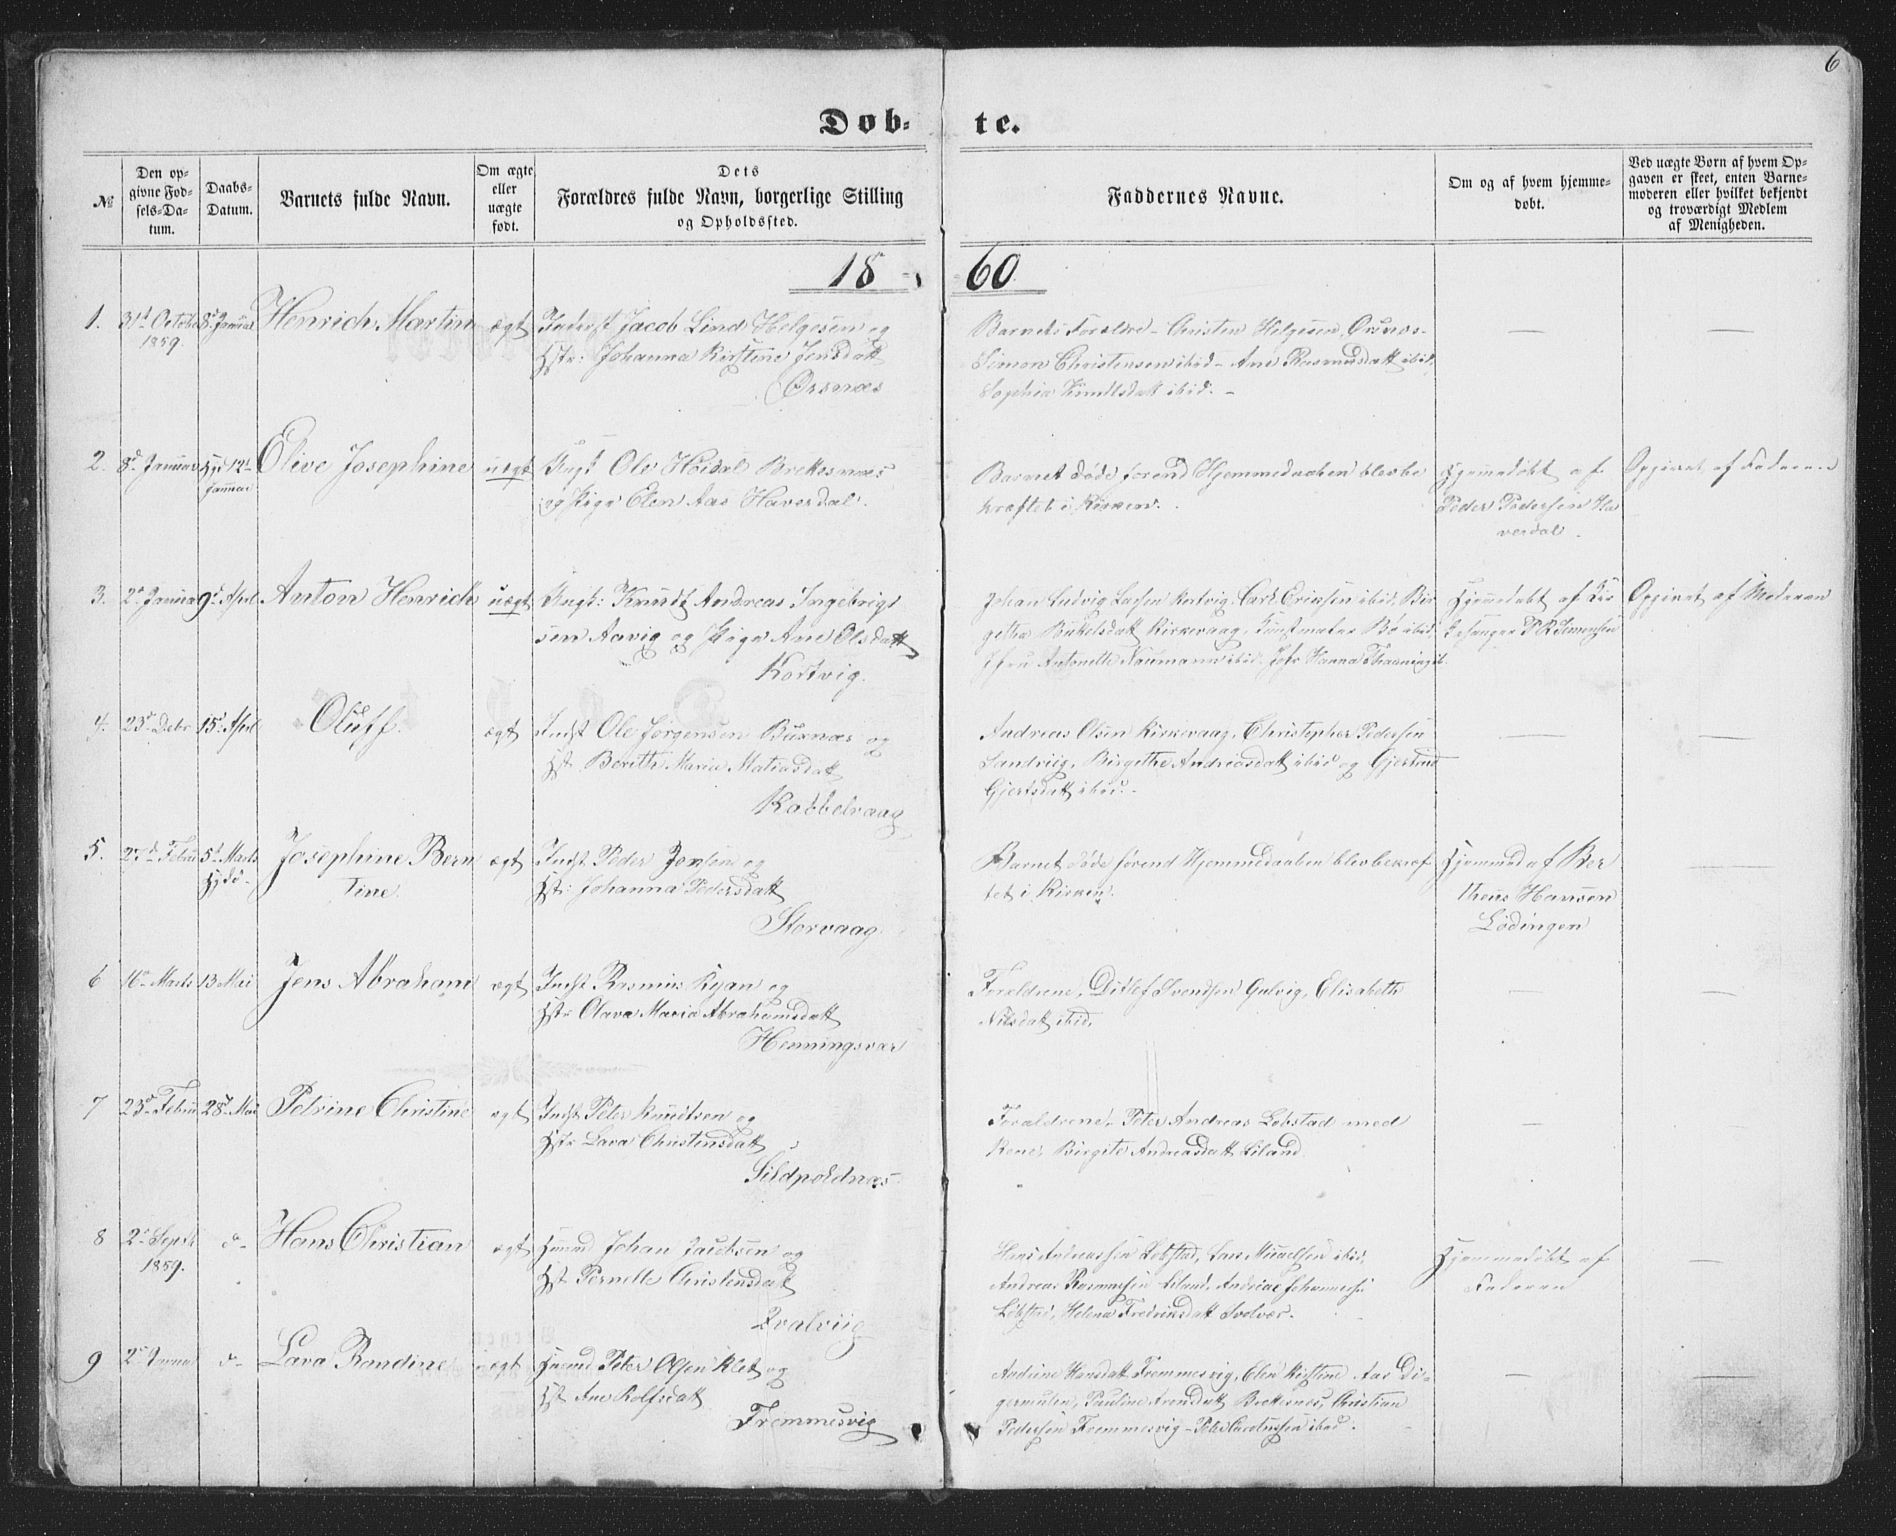 6
Døb- te.
№
Den op-
givne Fød-
sels-Da-
tum.
Daabs-
Datum.
Barnets fulde Navn.
Om ægte
eller
uægte
født.
Dets
Forældres fulde Navn, borgerlige Stilling
og Opholdssted.
Faddernes Navne.
Om og af hvem hjemme-
døbt.
Ved uægte Børn af hvem Op-
gaven er skeet, enten Barne-
moderen eller hvilket bekjendt
og troværdigt Medlem
af Menigheden.
18 - 60
1. 31d Octobr 8d Januar Henrich Martin ægt Inderst Jacob Lind Helgesen og
1859.
Hstr: Johanna Kirstine Jensdatt
Ørsnæs
Barnets Forældre - Christen Helgesen Ørsnæs-
Simon Christensen ibid - Ane Rasmusdatt ibid,
Sophia Knudtsdatt ibid. -
2. 8d Januar Hjd 12d Elive Josephine uægt Ungk Ole Høidal Brekesnæs
Januar
og Pige Elen Aas Haversdal.
Barnet døde førend Hjemmedaaben blev be
kræftet i Kirken.
Hjemmedøbt af
Peder Pedersen Ha
versdal.
Opgivet af Faderen
3. 2d Januar 9d April Anton Henrich uægt Ungk: Knudt Andreas Ingebrigt
sen Aavig og Pige Ane Olsdatt
Kortvig.
Johan Ludvig Larsen Kortvig, Carl Eriksen ibid, Bir
gethe Kirkevaag, Bø ibid,
Antonette Naumann ibid, Hanna
Hjemmedøbt af Kir
kesanger
Opgivet af Moderen
4. 23d Debr 15d April Oluff. ægt Indst Ole Jørgensen Buxnæs og
Hst: Berethe Maria Matiasdat
Kabbelvaag
Andreas Olsen Kirkevaag, Christopher Pedersen
Sandviig, Birgethe Andreasdatt ibid og Gjertrud
Gjertsdatt ibid. -
5. 27d Febru 5d Marts Josephine Bern ægt Indst Peder og
Hjdø-
tine.
Hst: Johanna Pedersdatt
Storvaag
Barnet døde førend Hjemmedaaben blev bekræf
tet i Kirken.
Hjemmed af Ber
theus Hansen
Lødingen
6 16d Marts 13 Mai Jens Abraham ægt Indst Rasmus Kyan og
Hstr Olava Maria Abrahamsdatt
Henningsvær
Forældrene, Ditlef Svendsen Gulvig, Elisabeth
Nilsdatt ibid.
7 23d Febru 28d Mai Petrine Christine ægt Indst Peter Knudtsen og
Hstr Lava Christensdatt
Sildpoldnæs
Forældrene, Peter Andreas Løbstad med
Kone, Birgite Andreasdatt Liland
8 2d Septb d- Hans Christian ægt Huusmd Johan Jacobsen og
1859.
Hst Pernelle Christensdat
Qvalviig
Hans Andreassen Løbstad, Lars ibid,
Andreas Rasmussen Liland, Andreas Johannessen
Løbstad, Helena Fredriksdatt Svolvær.
Hjemmedøbt af
Faderen
9 2d Januar d- Lava Randine ægt Huusmd Peter Olsen Klet og
Hst Ane Rolfsdatt
Fremmesvig
Andrine Hansdatt Fremmesvig, Elen Kirstine Aas Di-
germulen, Pauline Arendsdatt Brettesnæs, Christian
Pedersen Fremmesvig - Peter ibid.